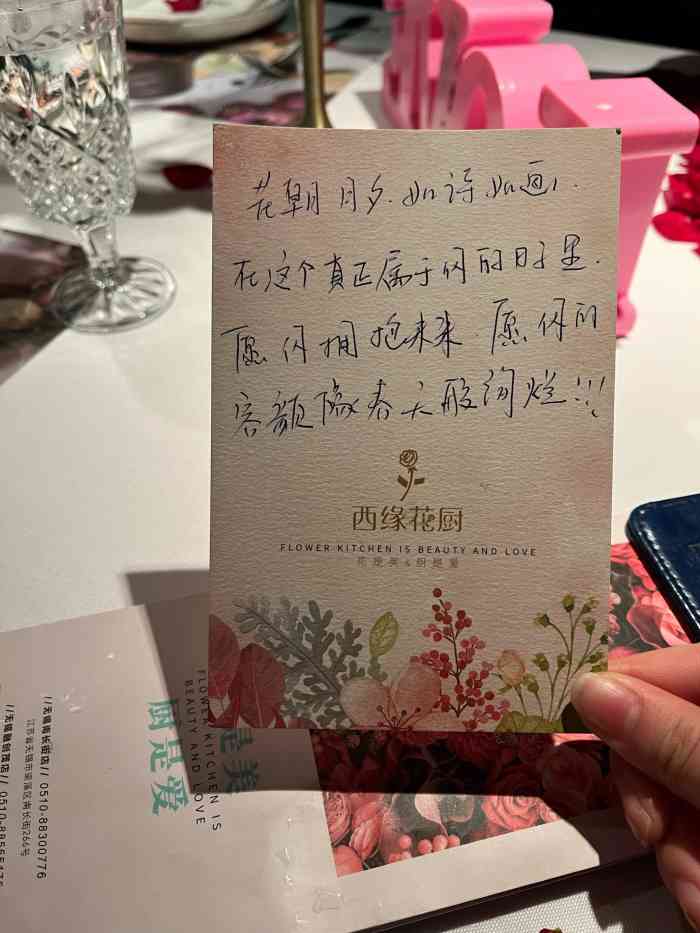 花朝月夕.如诗如画,
在这个真正属于你的日子里.
愿你拥抱未来.愿你的
容颜像春天般绚烂!!!
西缘花厨
FLOWER KITCHEN IS BEAUTY AND LOVE
花是美&厨是爱
是美
厨是爱
FLOWER KITCHEN IS
BEAUTY AND LOVE
//无锡南长街店// 0510-88300776
江苏省无锡市梁溪区南长街266号
//无锡融创茂店// 0510-